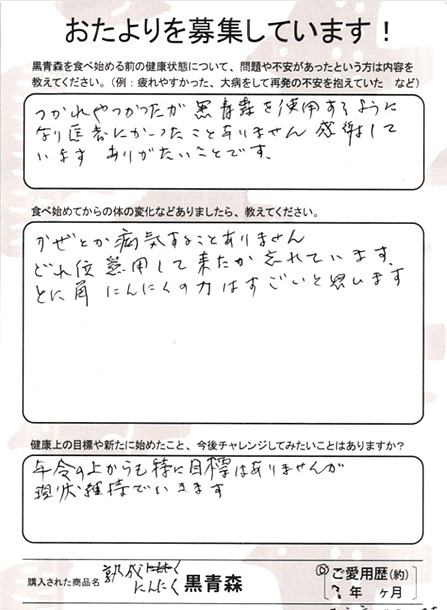 おたよりを募集しています！
黒青森を食べ始める前の健康状態について、問題や不安があったという方は内容を
教えてください。（例：疲れやすかった、大病をして再発の不安を抱えていた　など）
つかれやつかつたが 黒青森を使用するように
なり医者にかかつたことありません 感謝して
います ありがたいことです、
食べ始めてからの体の変化などありましたら、教えてください。
かぜとか病気することありません
どれ位愛用して来たか忘れています、
とに角 にんにくの力はすごいと思います
健康上の目標や新たに始めたこと、今後チャレンジしてみたいことはありますか？
年令の上からも特に目標はありませんが
現状維持でいきます
購入された商品名 熟成にんにく 黒青森
ご愛用歴（約）
？年　ヶ月